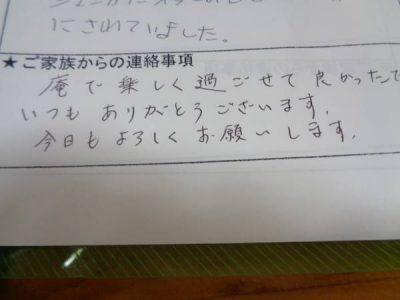 にされていました。
★ご家族からの連絡事項
庵で楽しく過ごせて良かったで
いつもありがとうございます。
今日もよろしくお願いします。